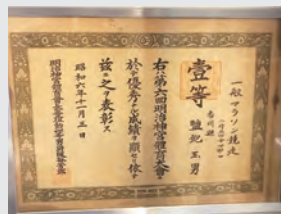 一般マラソン競走
壹等
香川縣 鹽飽玉男
右ハ第六囘明治神宮體育大會ニ
於テ優秀ナル成績ヲ顯セリ依テ
茲ニ之ヲ表彰ス
昭和六年十一月三日